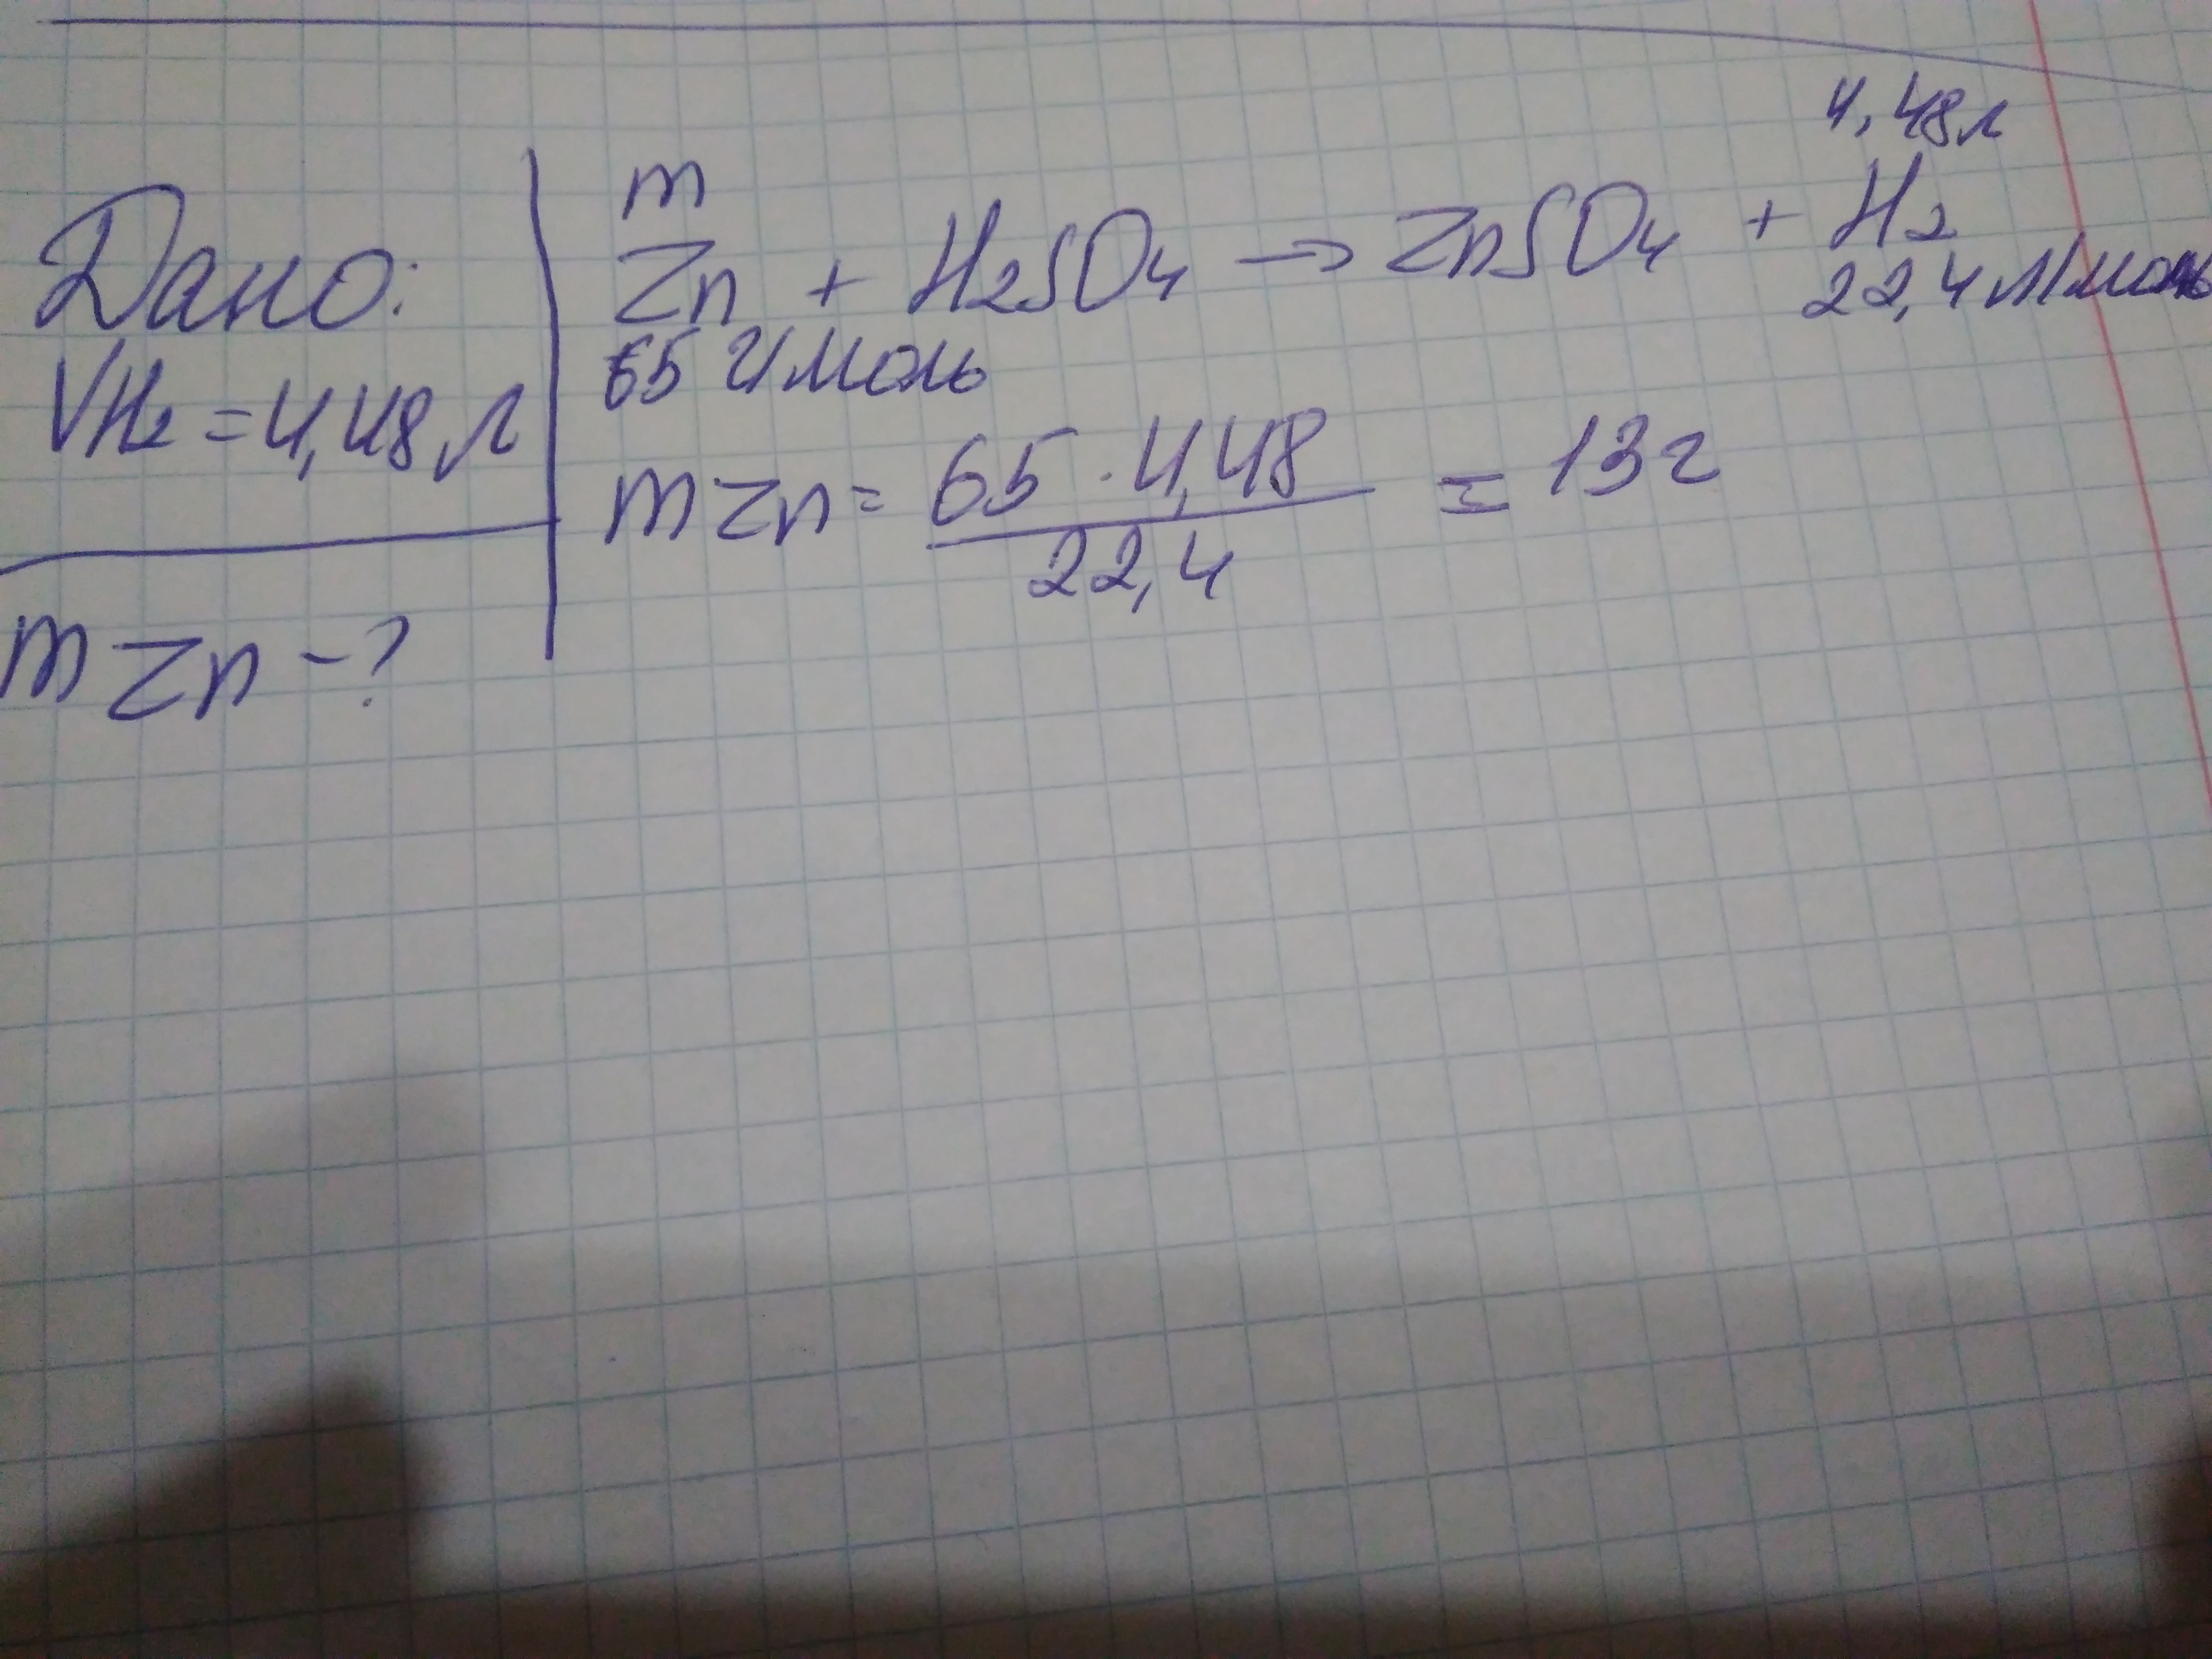 Дано:
VH₂ = 4,48 л
m Zn - ?
4,48 л
m
Zn + H₂SO₄ → ZnSO₄ + H₂
65 г/моль
22,4 л/моль
m Zn = 65 · 4,48 / 22,4 = 13 г